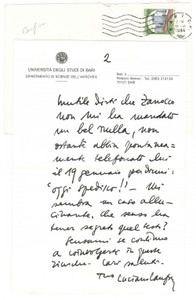 2
UNIVERSITÀ DEGLI STUDI DI BARI
DIPARTIMENTO DI SCIENZE DELL'ANTICHITÀ
Inutile dirti che Zanasco
non mi ha mandato
un bel nulla, non
ostante abbia
mente telefonato lui
il 19 gennaio per dirmi:
"oggi spedisco"!! — Mi
sembra un caso allu-
cinante. Che senso ha
tener segreto quel testo?
Scusami se continuo
a coinvolgerti in questa
Cari saluti
Tuo Luciano Canfora